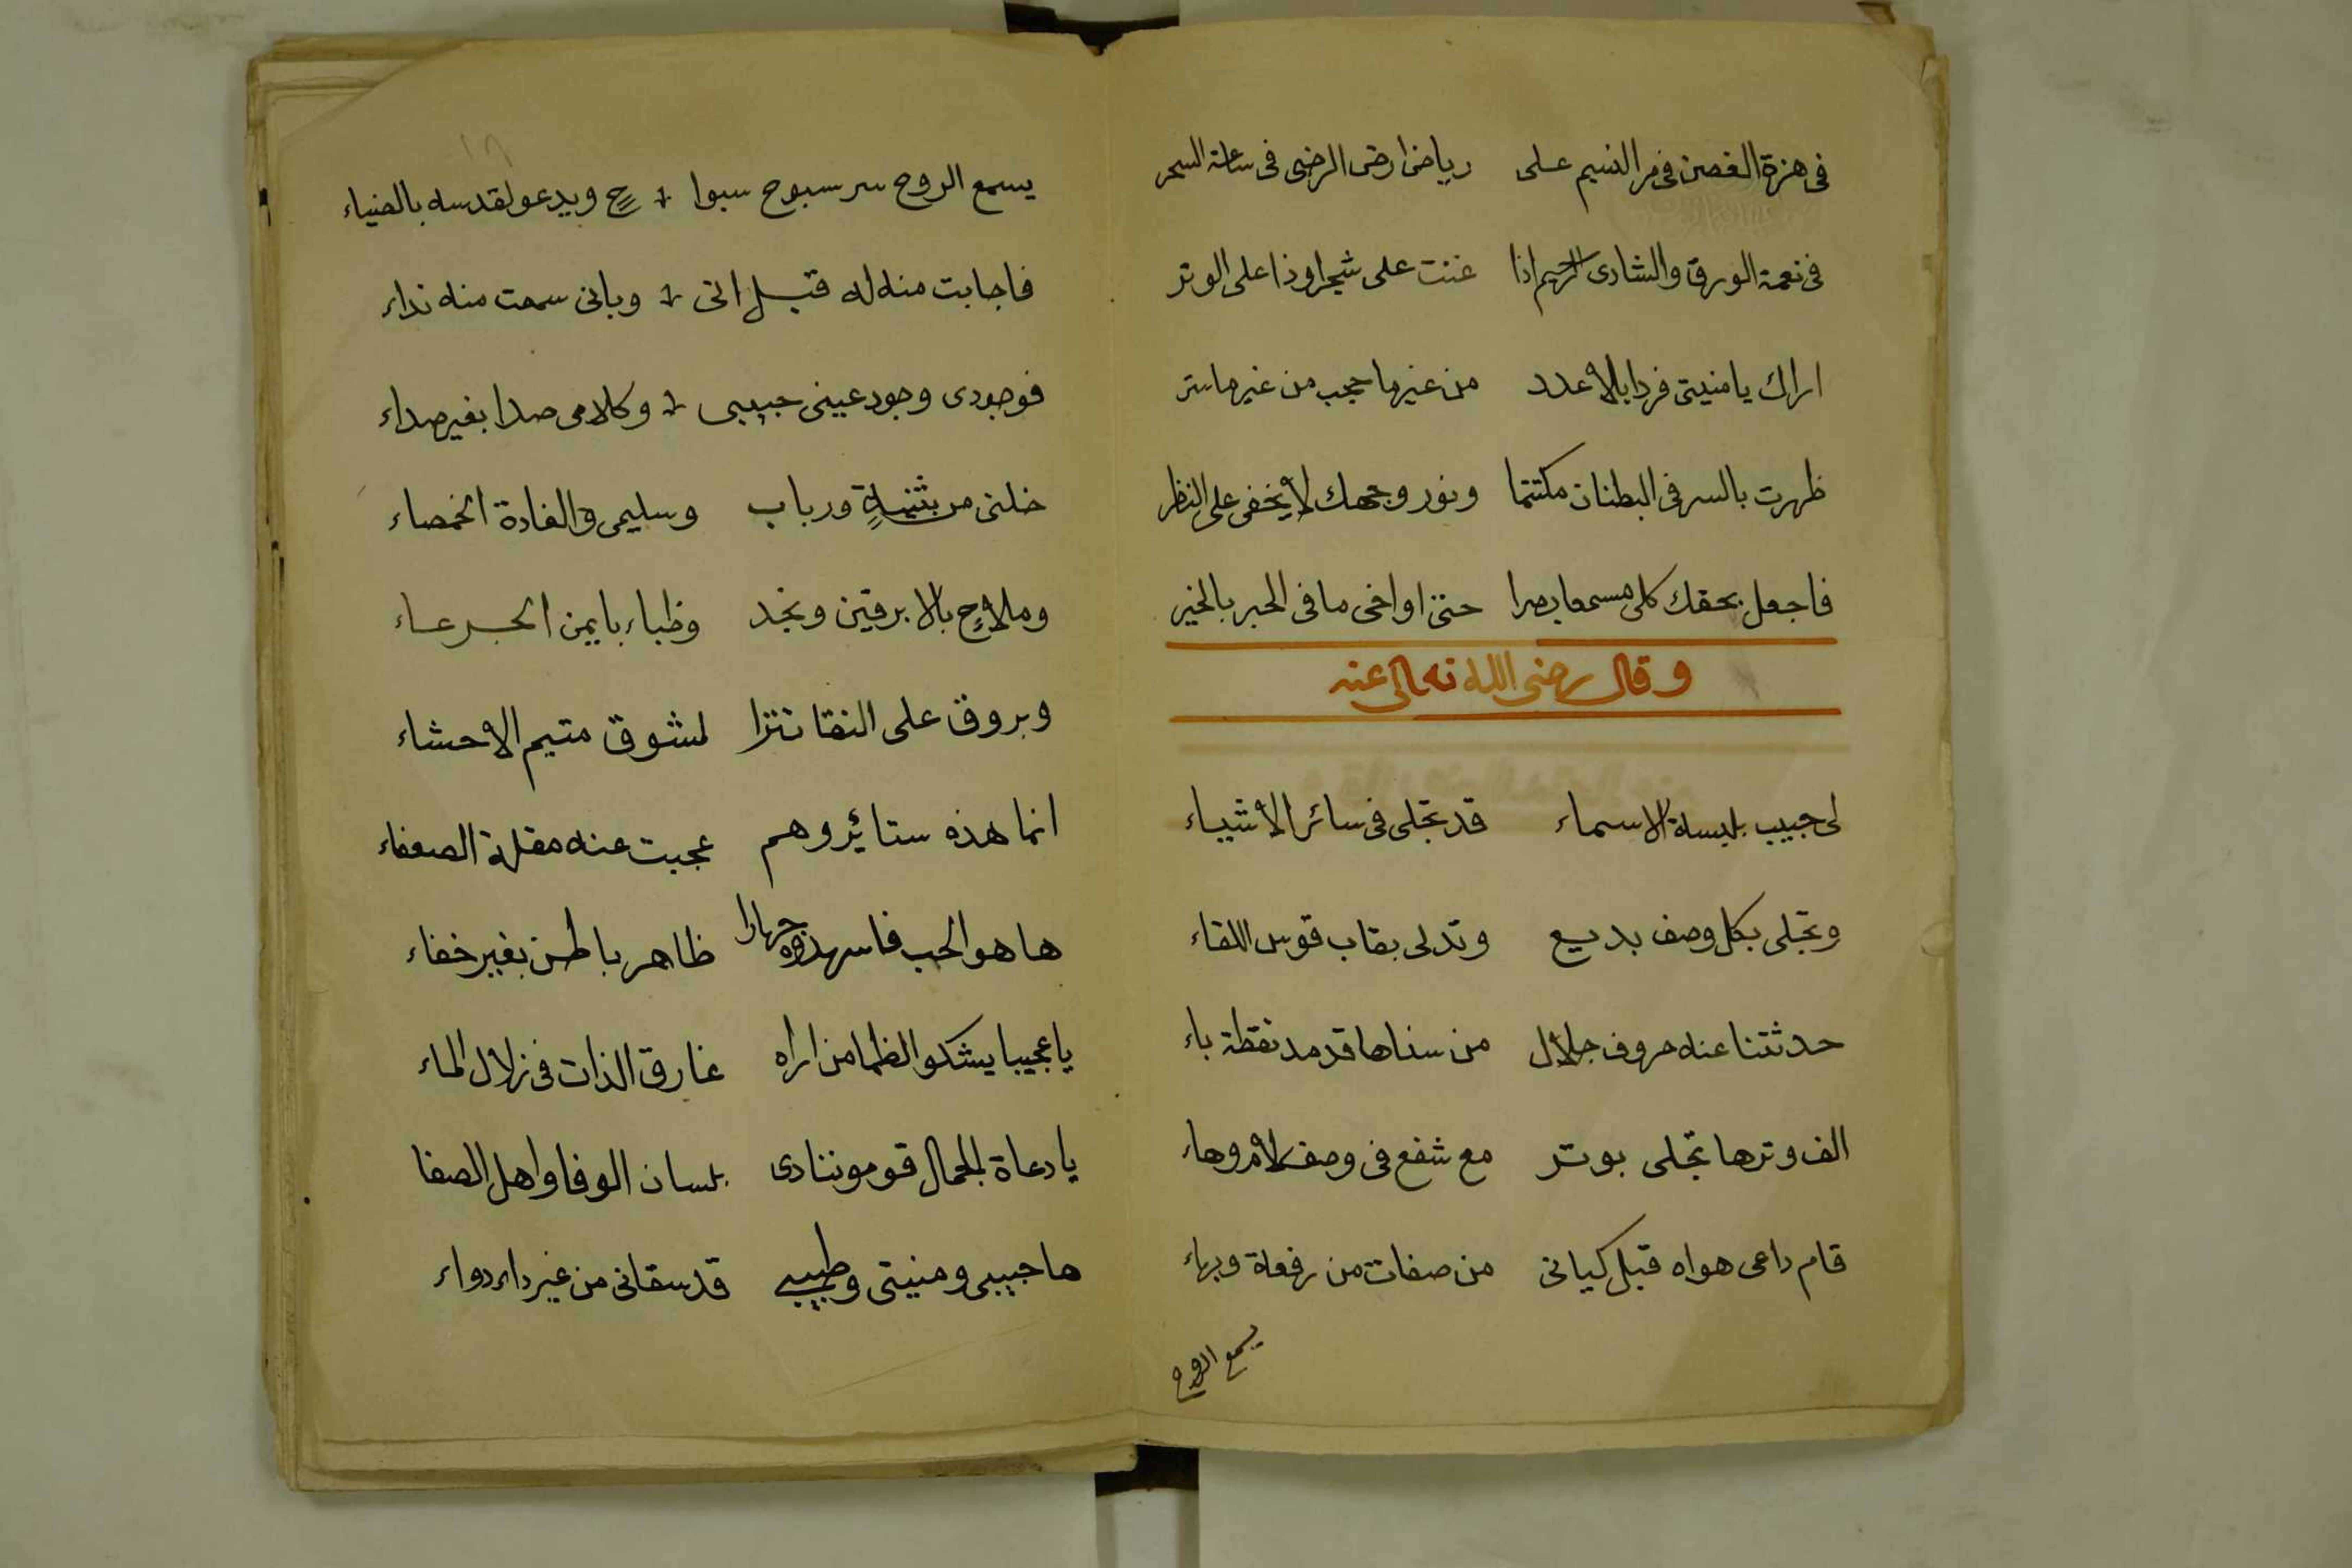 فى هزة الغصن فى مر النسيم على رياض ارض الرضى فى ساعة السحر
فى نغمة الورق والشادى الرخيم اذا غنت على شجر او ذا على الوتر
اراك يا منيتى فردا بلا عدد من غير ما حجب من غير ما ستر
ظهرت بالسر فى البطنان مكتتما ونور وجهك لا يخفى على النظر
فاجعل بحقك كلى مسمعا بصرا حتى اواخى ما فى الحبر بالخبر
وقال رضى الله تعالى عنه
لى حبيب بلبسة الاسماء قد تجلى فى سائر الاشياء
وتجلى بكل وصف بديع وتدلى بقاب قوس اللقاء
حدثتنا عنه حروف جلال من سناها قد مد نقطة باء
الف وترها تجلى بوتر مع شفع فى وصف لام وهاء
قام داعى هواه قبل كيانى من صفات من رفعة وبهاء
يسمع الروح
١٨
يسمع الروح سر سبوح سبوا ح ويدعو لقدسه بالضياء
فاجابت منه له قبل انى وبانى سمعت منه نداء
فوجودى وجود عينى حبيبى وكلامى صدا بغير صداء
خلتنى من بثينة ورباب وسليمى والغادة الخمصاء
وملاح بالابرقين ونجد وظباء بايمن الجرعاء
وبروق على النقا تترا لمشوق متيم الاحشاء
انما هذه ستائر وهم عجبت عنه مقلة الضعفاء
ها هو الحب فاشهدوه جهارا ظاهر باطن بغير خفاء
يا عجيبا يشكو الظما من اراه غارق الذات فى زلال الماء
يا دعاة الجمال قومو ننادى بلسان الوفا واهل الصفا
ها حبيبى ومنيتى وطبيبى قد سقانى من غير داء دواء